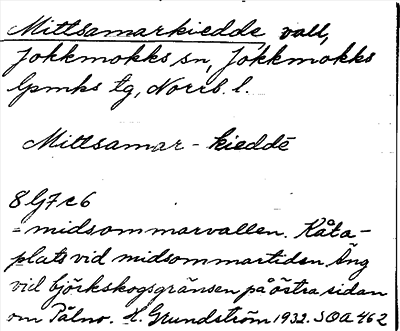 Mittsamarkiedde, vall,
Jokkmokks sn, Jokkmokks
lpmks tg, Norrb. l.
Mittsamar - kieddē
8 G 7 c 6
= midsommarvallen. Kåta-
plats vid midsommartiden. Äng
vid björkskogsgränsen på östra sidan
om Pålno. H. Grundström 1932. SOA 462